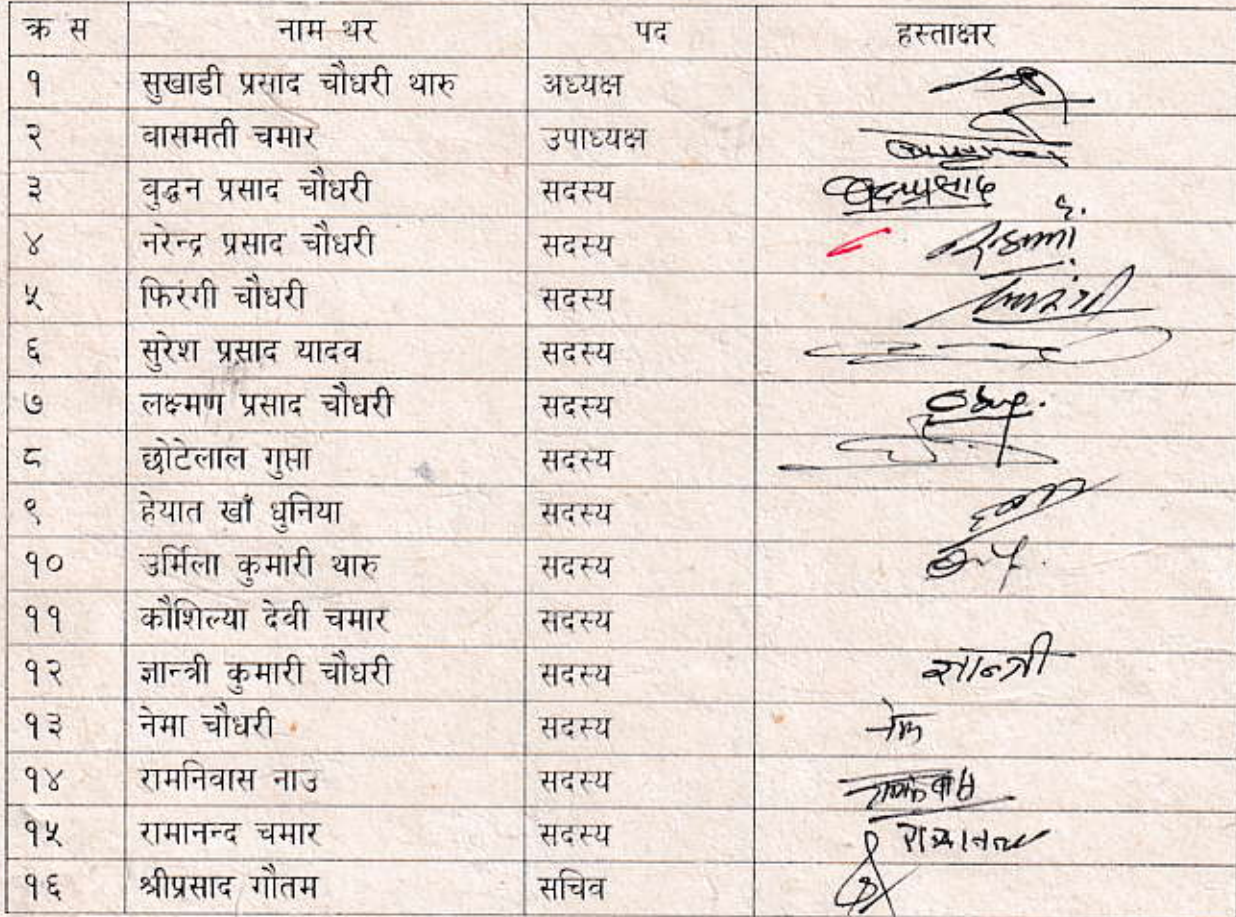 क्र स नाम थर पद हस्ताक्षर
१ सुखाडी प्रसाद चौधरी थारु अध्यक्ष
२ वासमती चमार उपाध्यक्ष
३ वुद्धन प्रसाद चौधरी सदस्य
४ नरेन्द्र प्रसाद चौधरी सदस्य
५ फिरंगी चौधरी सदस्य
६ सुरेश प्रसाद यादव सदस्य
७ लक्ष्मण प्रसाद चौधरी सदस्य
८ छोटेलाल गुप्ता सदस्य
९ हेयात खाँ धुनिया सदस्य
१० उर्मिला कुमारी थारु सदस्य
११ कौशिल्या देवी चमार सदस्य
१२ ज्ञान्त्री कुमारी चौधरी सदस्य ज्ञान्त्री
१३ नेमा चौधरी सदस्य
१४ रामनिवास नाउ सदस्य
१५ रामानन्द चमार सदस्य
१६ श्रीप्रसाद गौतम सचिव